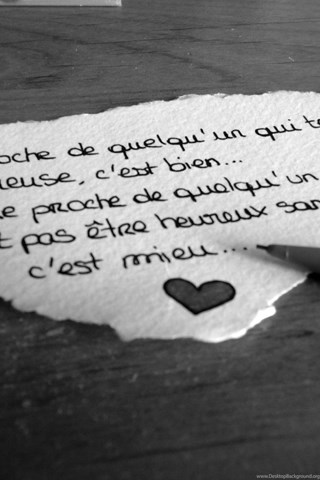 oche de quelqu'un qui te
ieuse, c'est bien...
e proche de quelqu'un
t pas être heureux san
c'est mieu....
www.DesktopBackground.org